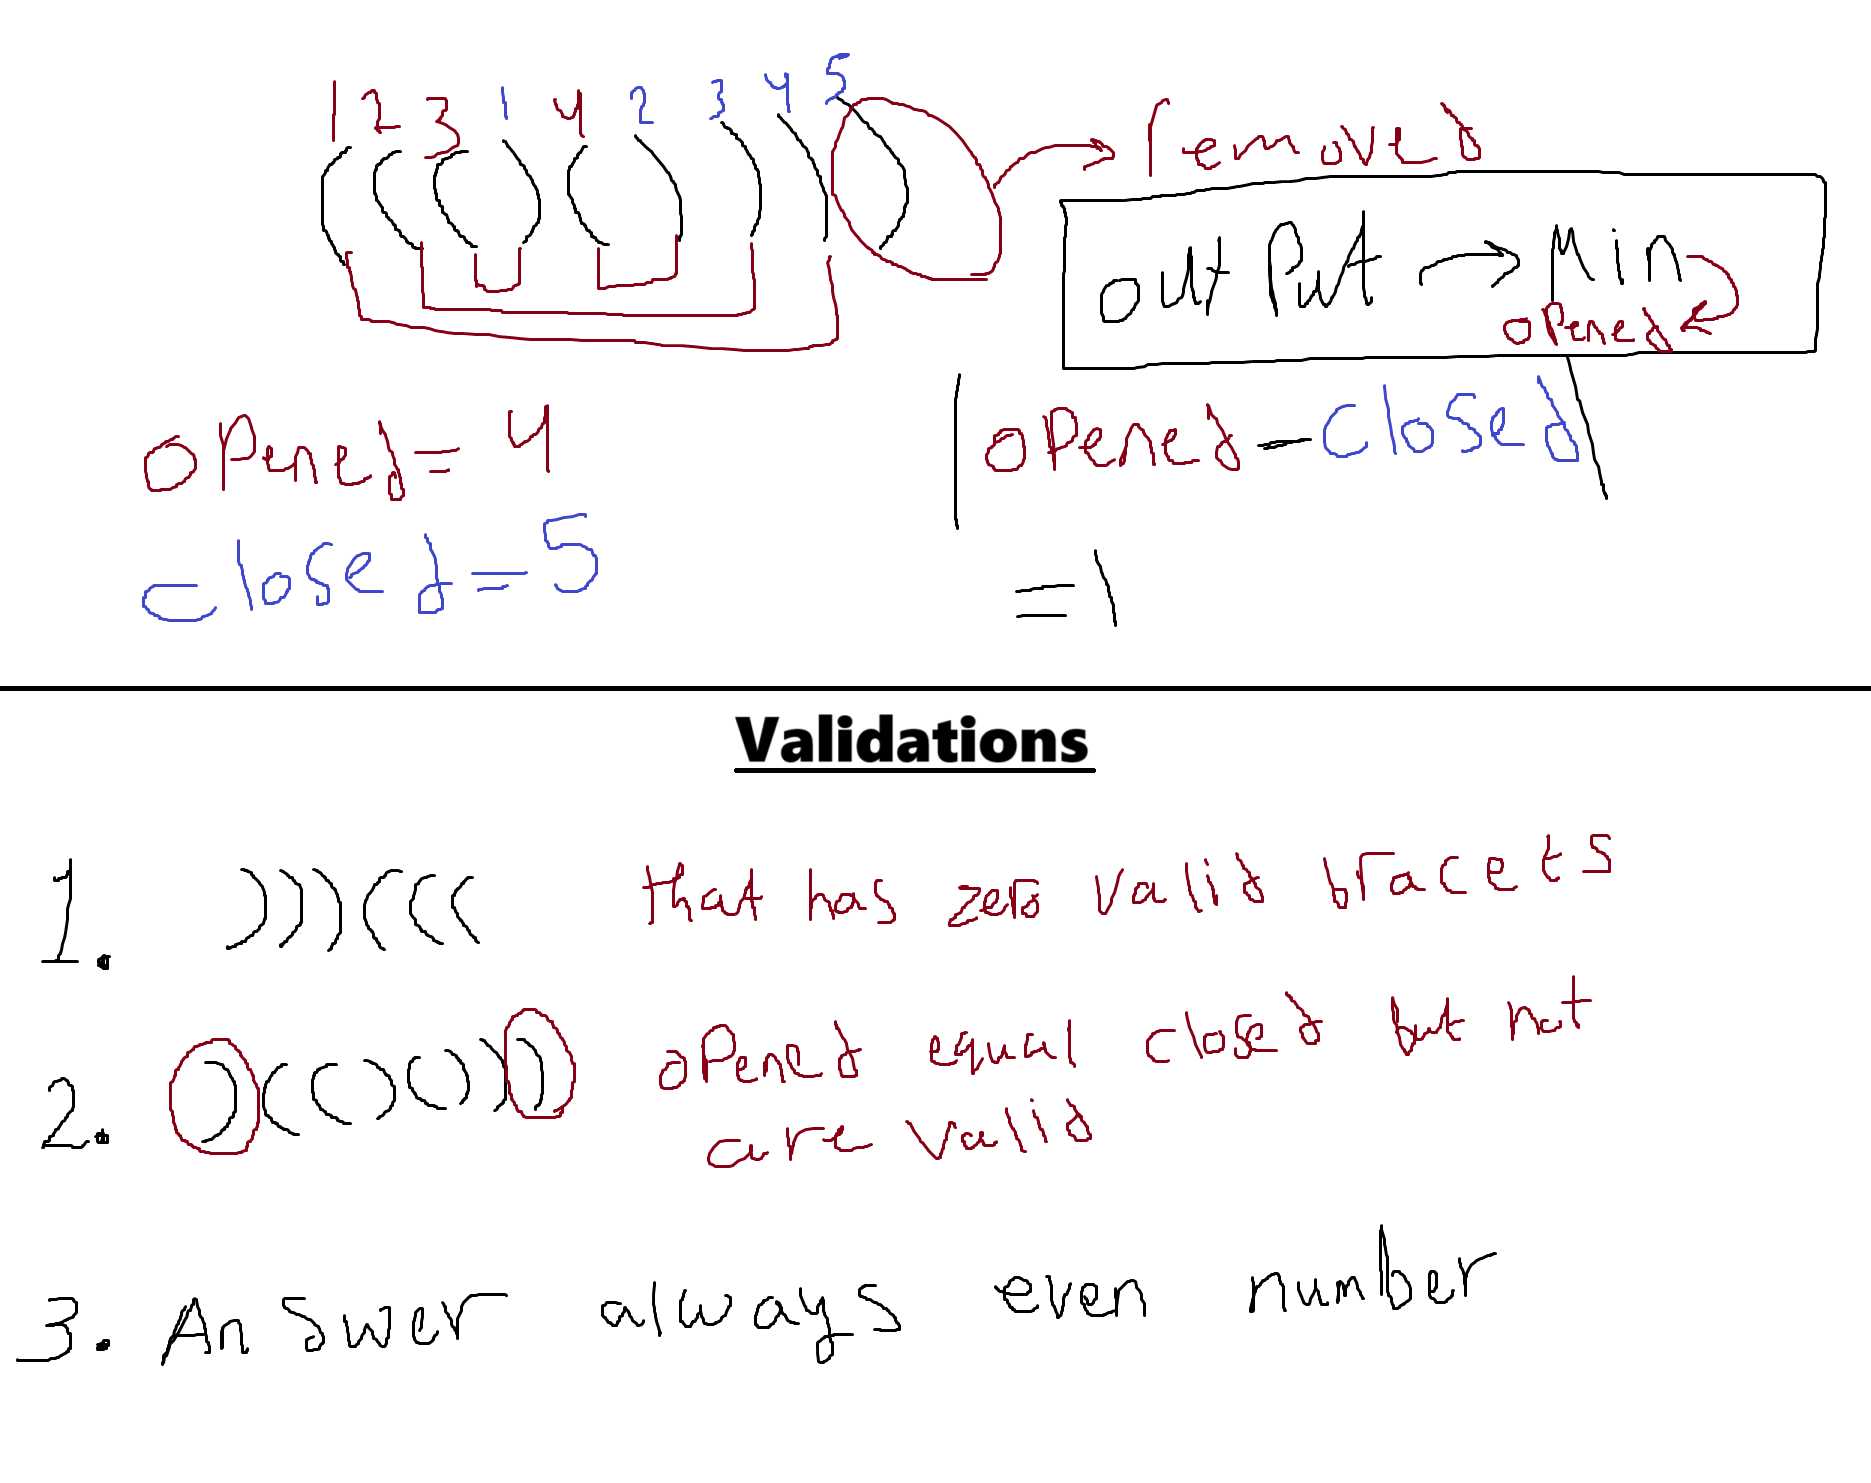 1 2 3 1 4 2 3 4 5
( ( ( ) ( ) ) ) ) removed
outPut → Min
oPened
oPened = 4 |oPened - closed|
closed = 5 = 1
Validations
1. )))((( that has zero valid bracets
2. )(()())) oPened equal closed but not
are valid
3. Answer always even number